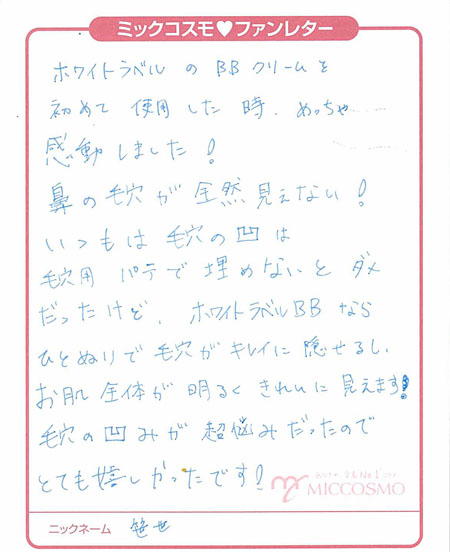 ミックコスモ♥ファンレター
ホワイトラベルのBBクリームを
初めて使用した時、めっちゃ
感動しました!
鼻の毛穴が全然見えない!
いつもは毛穴の凹は
毛穴用パテで埋めないとダメ
だったけど、ホワイトラベルBBなら
ひとぬりで毛穴がキレイに隠せるし、
お肌全体が明るくきれいに見えます!
毛穴の凹みが超悩みだったので
とても嬉しかったです!
MICCOSMO
ニックネーム 笹世